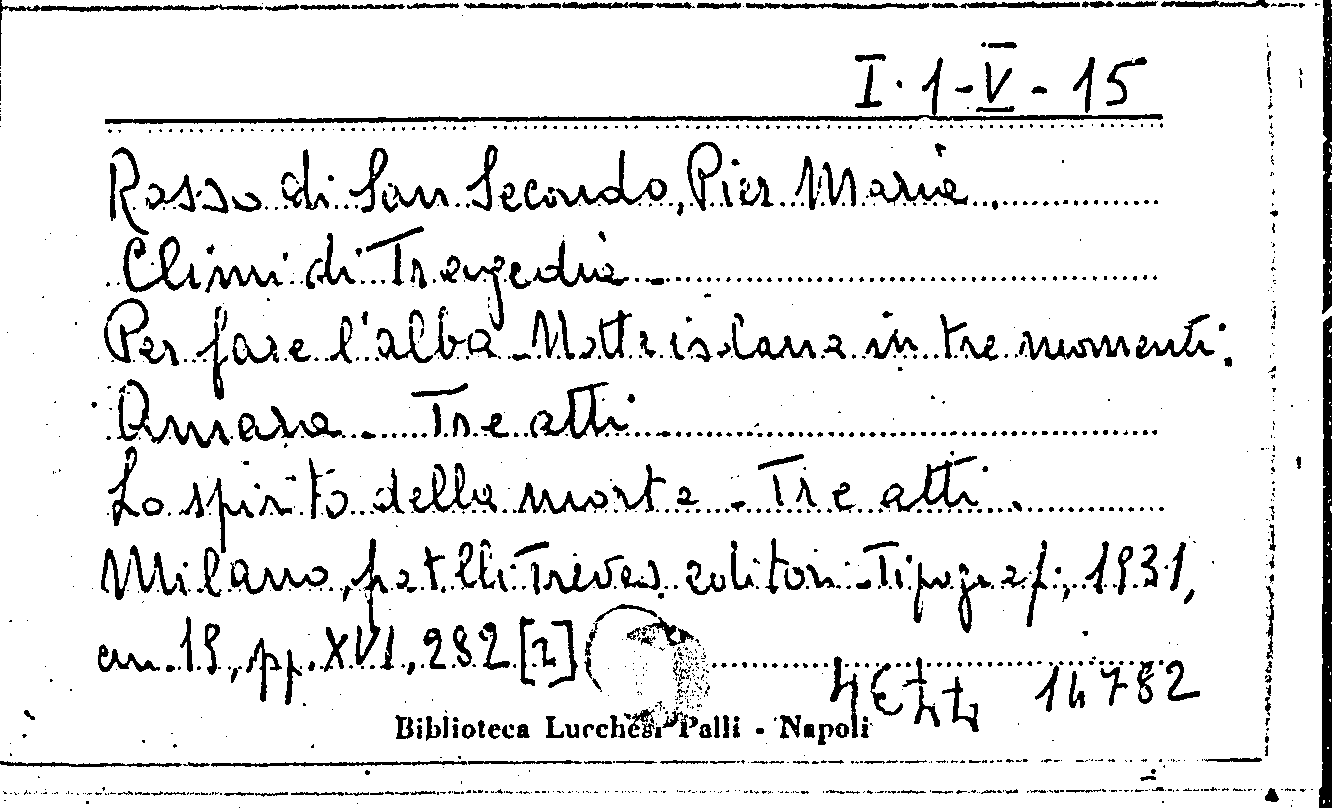 I. 1-V-15
Rosso di San Secondo, Pier Maria.
Climi di Tragedia -
Per fare l'alba - Notte isolana in tre momenti.
Amara - Tre atti -
Lo spirito della morte - Tre atti.
Milano, fratelli Treves editori - Tipograf., 1931,
cm. 19, pp. XVI, 282 [2]
14782
Biblioteca Lucchesi Palli - Napoli